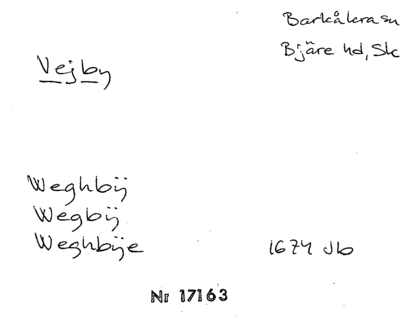 Barkåkra sn
Bjäre hd, Sk
Vejby
Weghbÿ
Wegbÿ
Weghbÿe 1674 Jb
Nr 17163